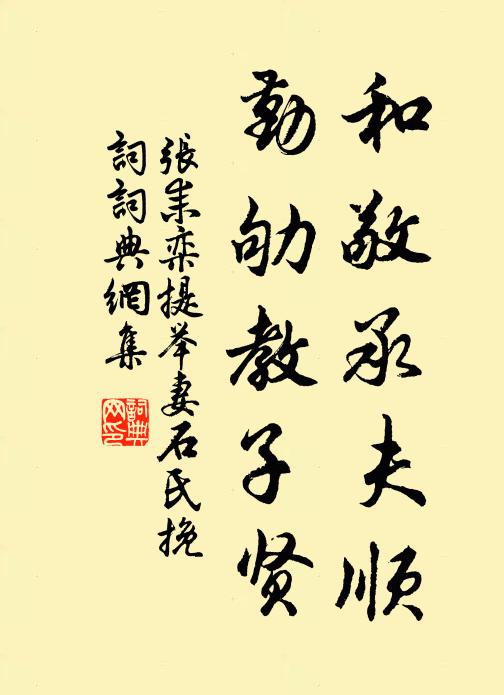 和敬承夫顺
勤劬教子贤
張提举妻石氏挽
詞詞典網集
詞典
网印